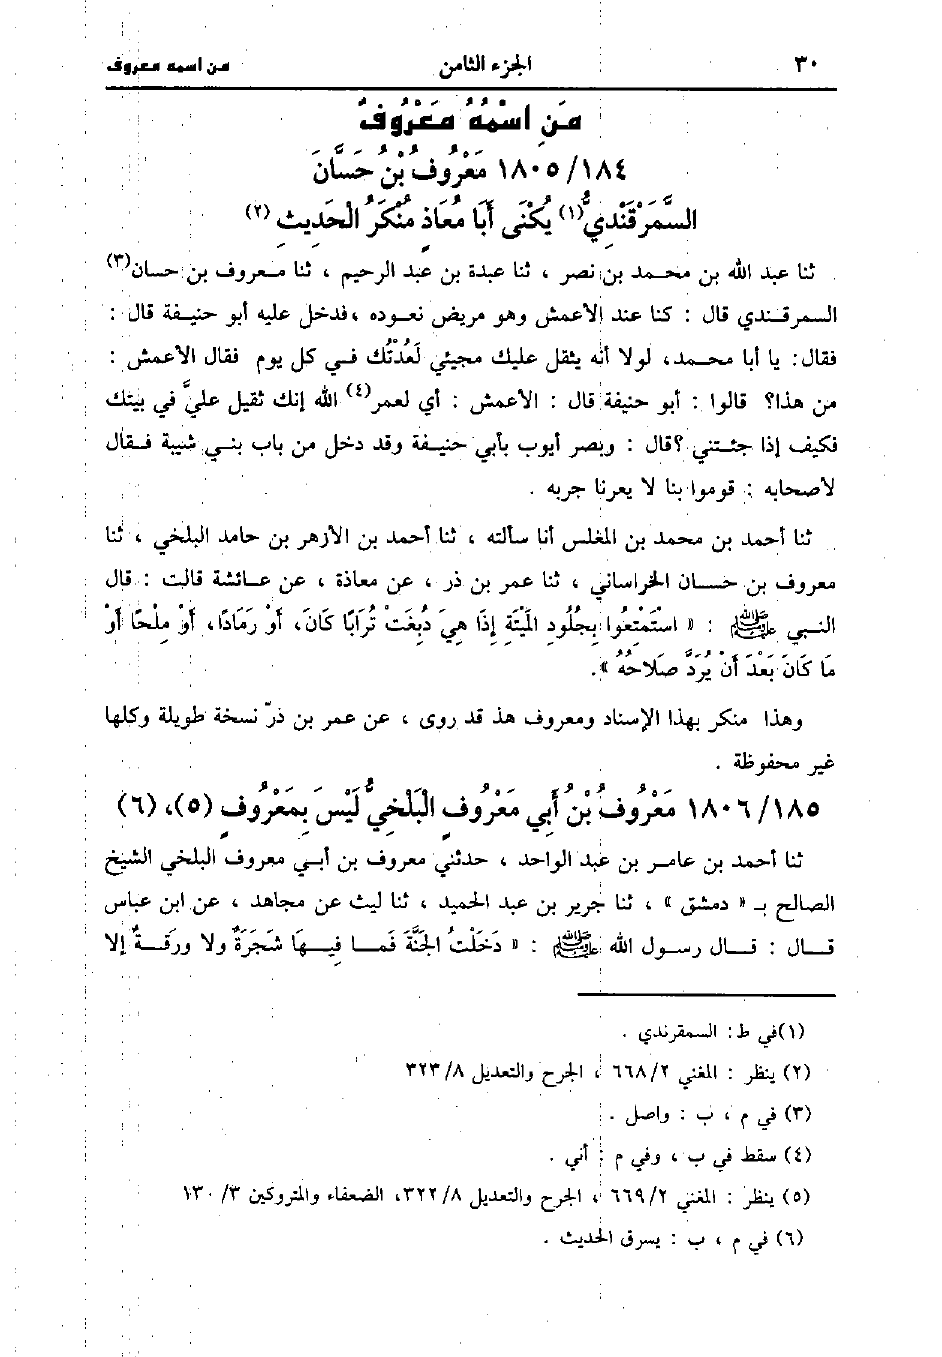 ٣٠ الجزء الثامن من اسمه معروف
مَنِ اسْمُهُ مَعْرُوفٌ
١٨٠٥/١٨٤ مَعْرُوفُ بْنُ حَسَّانَ
السَّمَرْقَنْدِيُّ(١) يُكْنَى أَبَا مُعَاذٍ مُنْكَرُ الْحَدِيثِ (٢)
ثنا عبد الله بن محمد بن نصر ، ثنا عبدة بن عبد الرحيم ، ثنا معروف بن حسان(٣)
السمرقندي قال : كنا عند الأعمش وهو مريض نعوده ، فدخل عليه أبو حنيفة قال :
فقال: يا أبا محمد، لولا أنه يثقل عليك مجيئي لَعُدْتُك في كل يوم فقال الأعمش :
من هذا؟ قالوا : أبو حنيفة قال : الأعمش : أي لعمر(٤) الله إنك ثقيل عليَّ في بيتك
فكيف إذا جئتني ؟قال : وبصر أيوب بأبي حنيفة وقد دخل من باب بني شيبة فقال
لأصحابه : قوموا بنا لا يعرنا جربه .
ثنا أحمد بن محمد بن المغلس أنا سألته ، ثنا أحمد بن الأزهر بن حامد البلخي ، ثنا
معروف بن حسان الخراساني ، ثنا عمر بن ذر ، عن معاذة ، عن عائشة قالت : قال
النبي ﷺ : « اسْتَمْتَعُوا بِجُلُودِ الْمَيْتَةِ إِذَا هِيَ دُبِغَتْ تُرَابًا كَانَ، أَوْ رَمَادًا، أَوْ مِلْحًا أَوْ
مَا كَانَ بَعْدَ أَنْ يُرَدَّ صَلَاحُهُ ».
وهذا منكر بهذا الإسناد ومعروف هذ قد روى ، عن عمر بن ذرّ نسخة طويلة وكلها
غير محفوظة .
١٨٠٦/١٨٥ مَعْرُوفُ بْنُ أَبِي مَعْرُوفٍ الْبَلْخِيُّ لَيْسَ بِمَعْرُوفٍ (٥)، (٦)
ثنا أحمد بن عامر بن عبد الواحد ، حدثني معروف بن أبي معروف البلخي الشيخ
الصالح بـ « دمشق » ، ثنا جرير بن عبد الحميد ، ثنا ليث عن مجاهد ، عن ابن عباس
قال : قال رسول الله ﷺ : « دَخَلْتُ الْجَنَّةَ فَمَا فِيهَا شَجَرَةٌ ولا ورقَةٌ إلا
(١)في ط: السمقرندي .
(٢) ينظر : المغني ٦٦٨/٢ ، الجرح والتعديل ٣٢٣/٨
(٣) في م ، ب : واصل .
(٤) سقط في ب ، وفي م : أني .
(٥) ينظر : المغني ٦٦٩/٢ ، الجرح والتعديل ٣٢٢/٨، الضعفاء والمتروكين ١٣٠/٣
(٦) في م ، ب : يسرق الحديث .